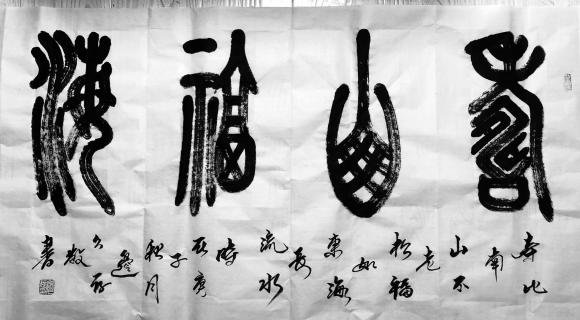 壽山福海
寿比
南
山不
老
松福
如
東海
長
流水
時
在庚
子
秋月
邊
久
敬
書